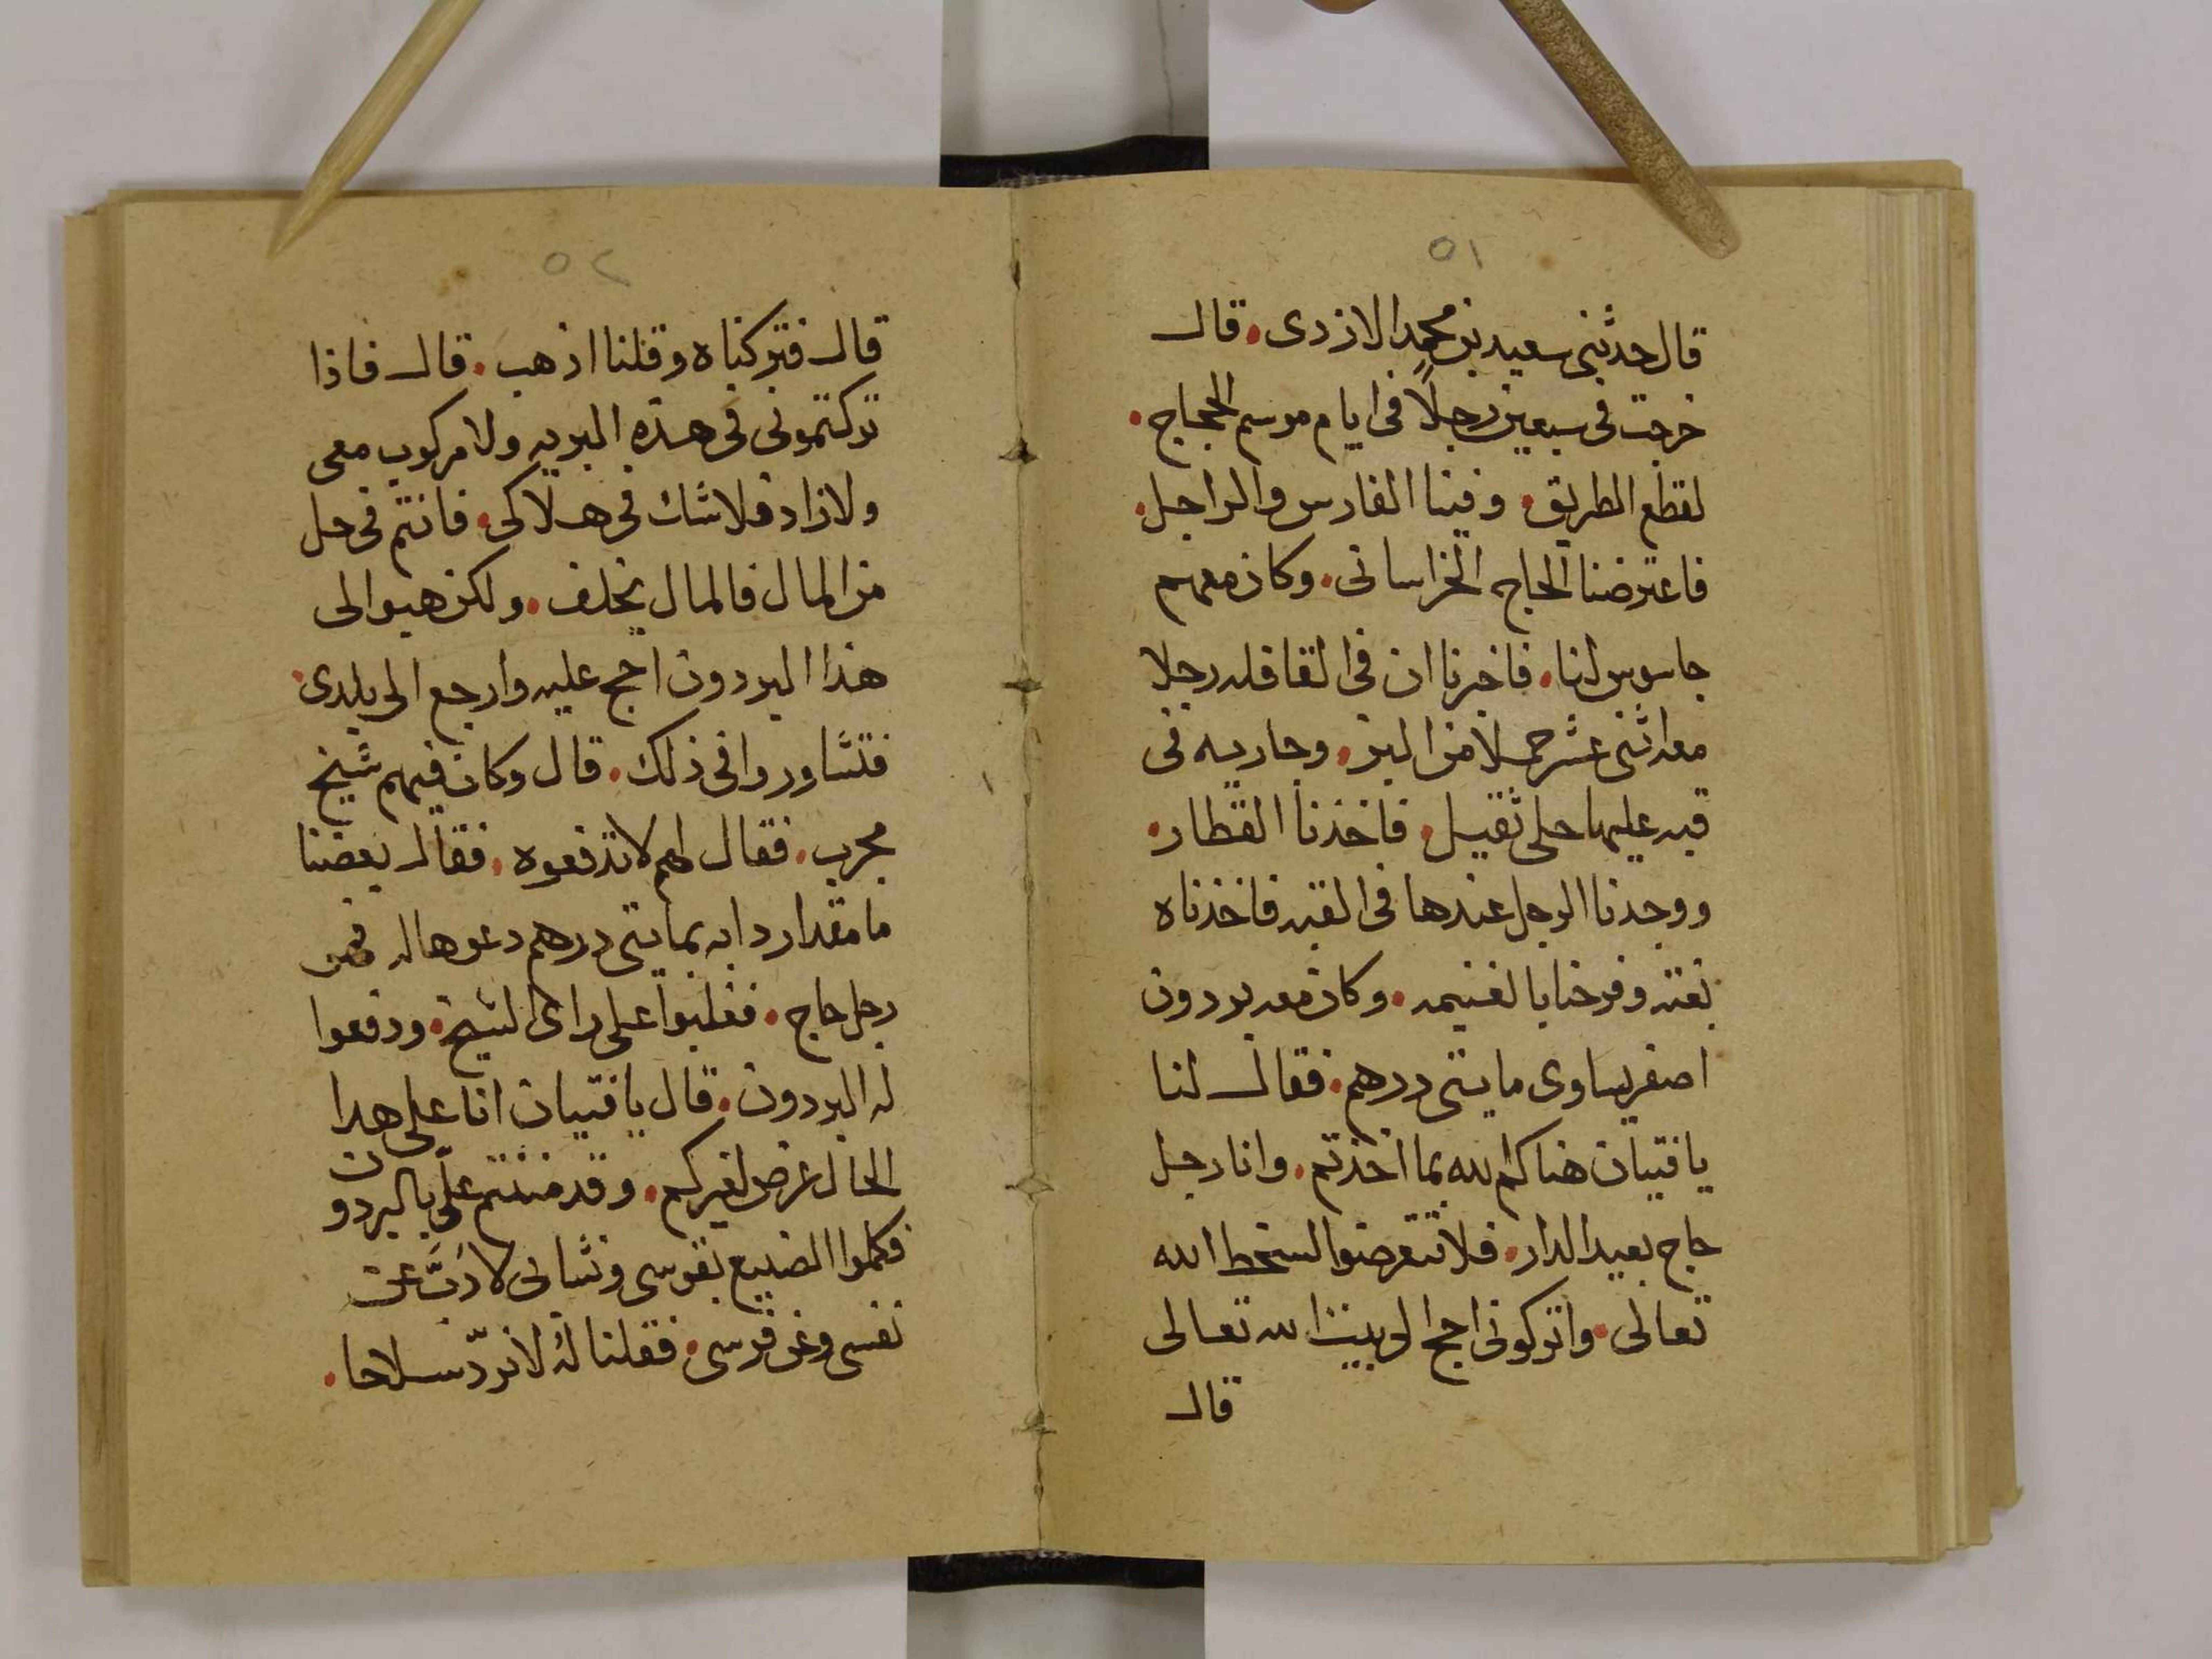 ٥١
قال حدثنى سعيد بن محمد الازدى . قال
خرجت فى سبعين رجلاً فى ايام موسم الحجاج .
لقطع الطريق . وفينا الفارس والراجل .
فاعترضنا الحاج الخراسانى . وكان معهم
جاسوس لنا . فاخبرنا ان فى القافله رجلا
معه اثنى عشر حملا من البز . وجاريه فى
قبه عليها حلى ثقيل . فاخذنا القطار .
ووجدنا الرجل عندها فى القبه فاخذناه
بغته وفرحنا بالغنيمه . وكان معه بردون
اصفر يساوى مايتى درهم . فقال لنا
يا فتيان هناكم الله بما اخذتم . وانا رجل
حاج بعيد الدار . فلا تتعرضوا لسخط الله
تعالى . واتركونى احج الى بيت الله تعالى
قال
٥٢
قال فتركناه وقلنا اذهب . قال فاذا
تركتمونى فى هذه البريه ولا مركوب معى
ولا زاد فلا شك فى هلاكى . فانتم فى حل
من المال فالمال يخلف . ولكن هبوا لى
هذا البردون احج عليه وارجع الى بلدى .
فتشاوروا فى ذلك . قال وكان فيهم شيخ
مجرب . فقال لهم لا تدفعوه . فقال بعضنا
ما مقدار دابه بمايتى درهم دعوها له فهو
رجل حاج . فغلبوا على راى الشيخ . ودفعوا
له البردون . قال يا فتيان انا على هدا
الحال غرض لغيركم . وقد مننتم علىّ بالبردون
فكملوا الصنيع بقوسى ونشابى لاذبّ عن
نفسى وعن فرسى . فقلنا له لا نردّ سلاحا .